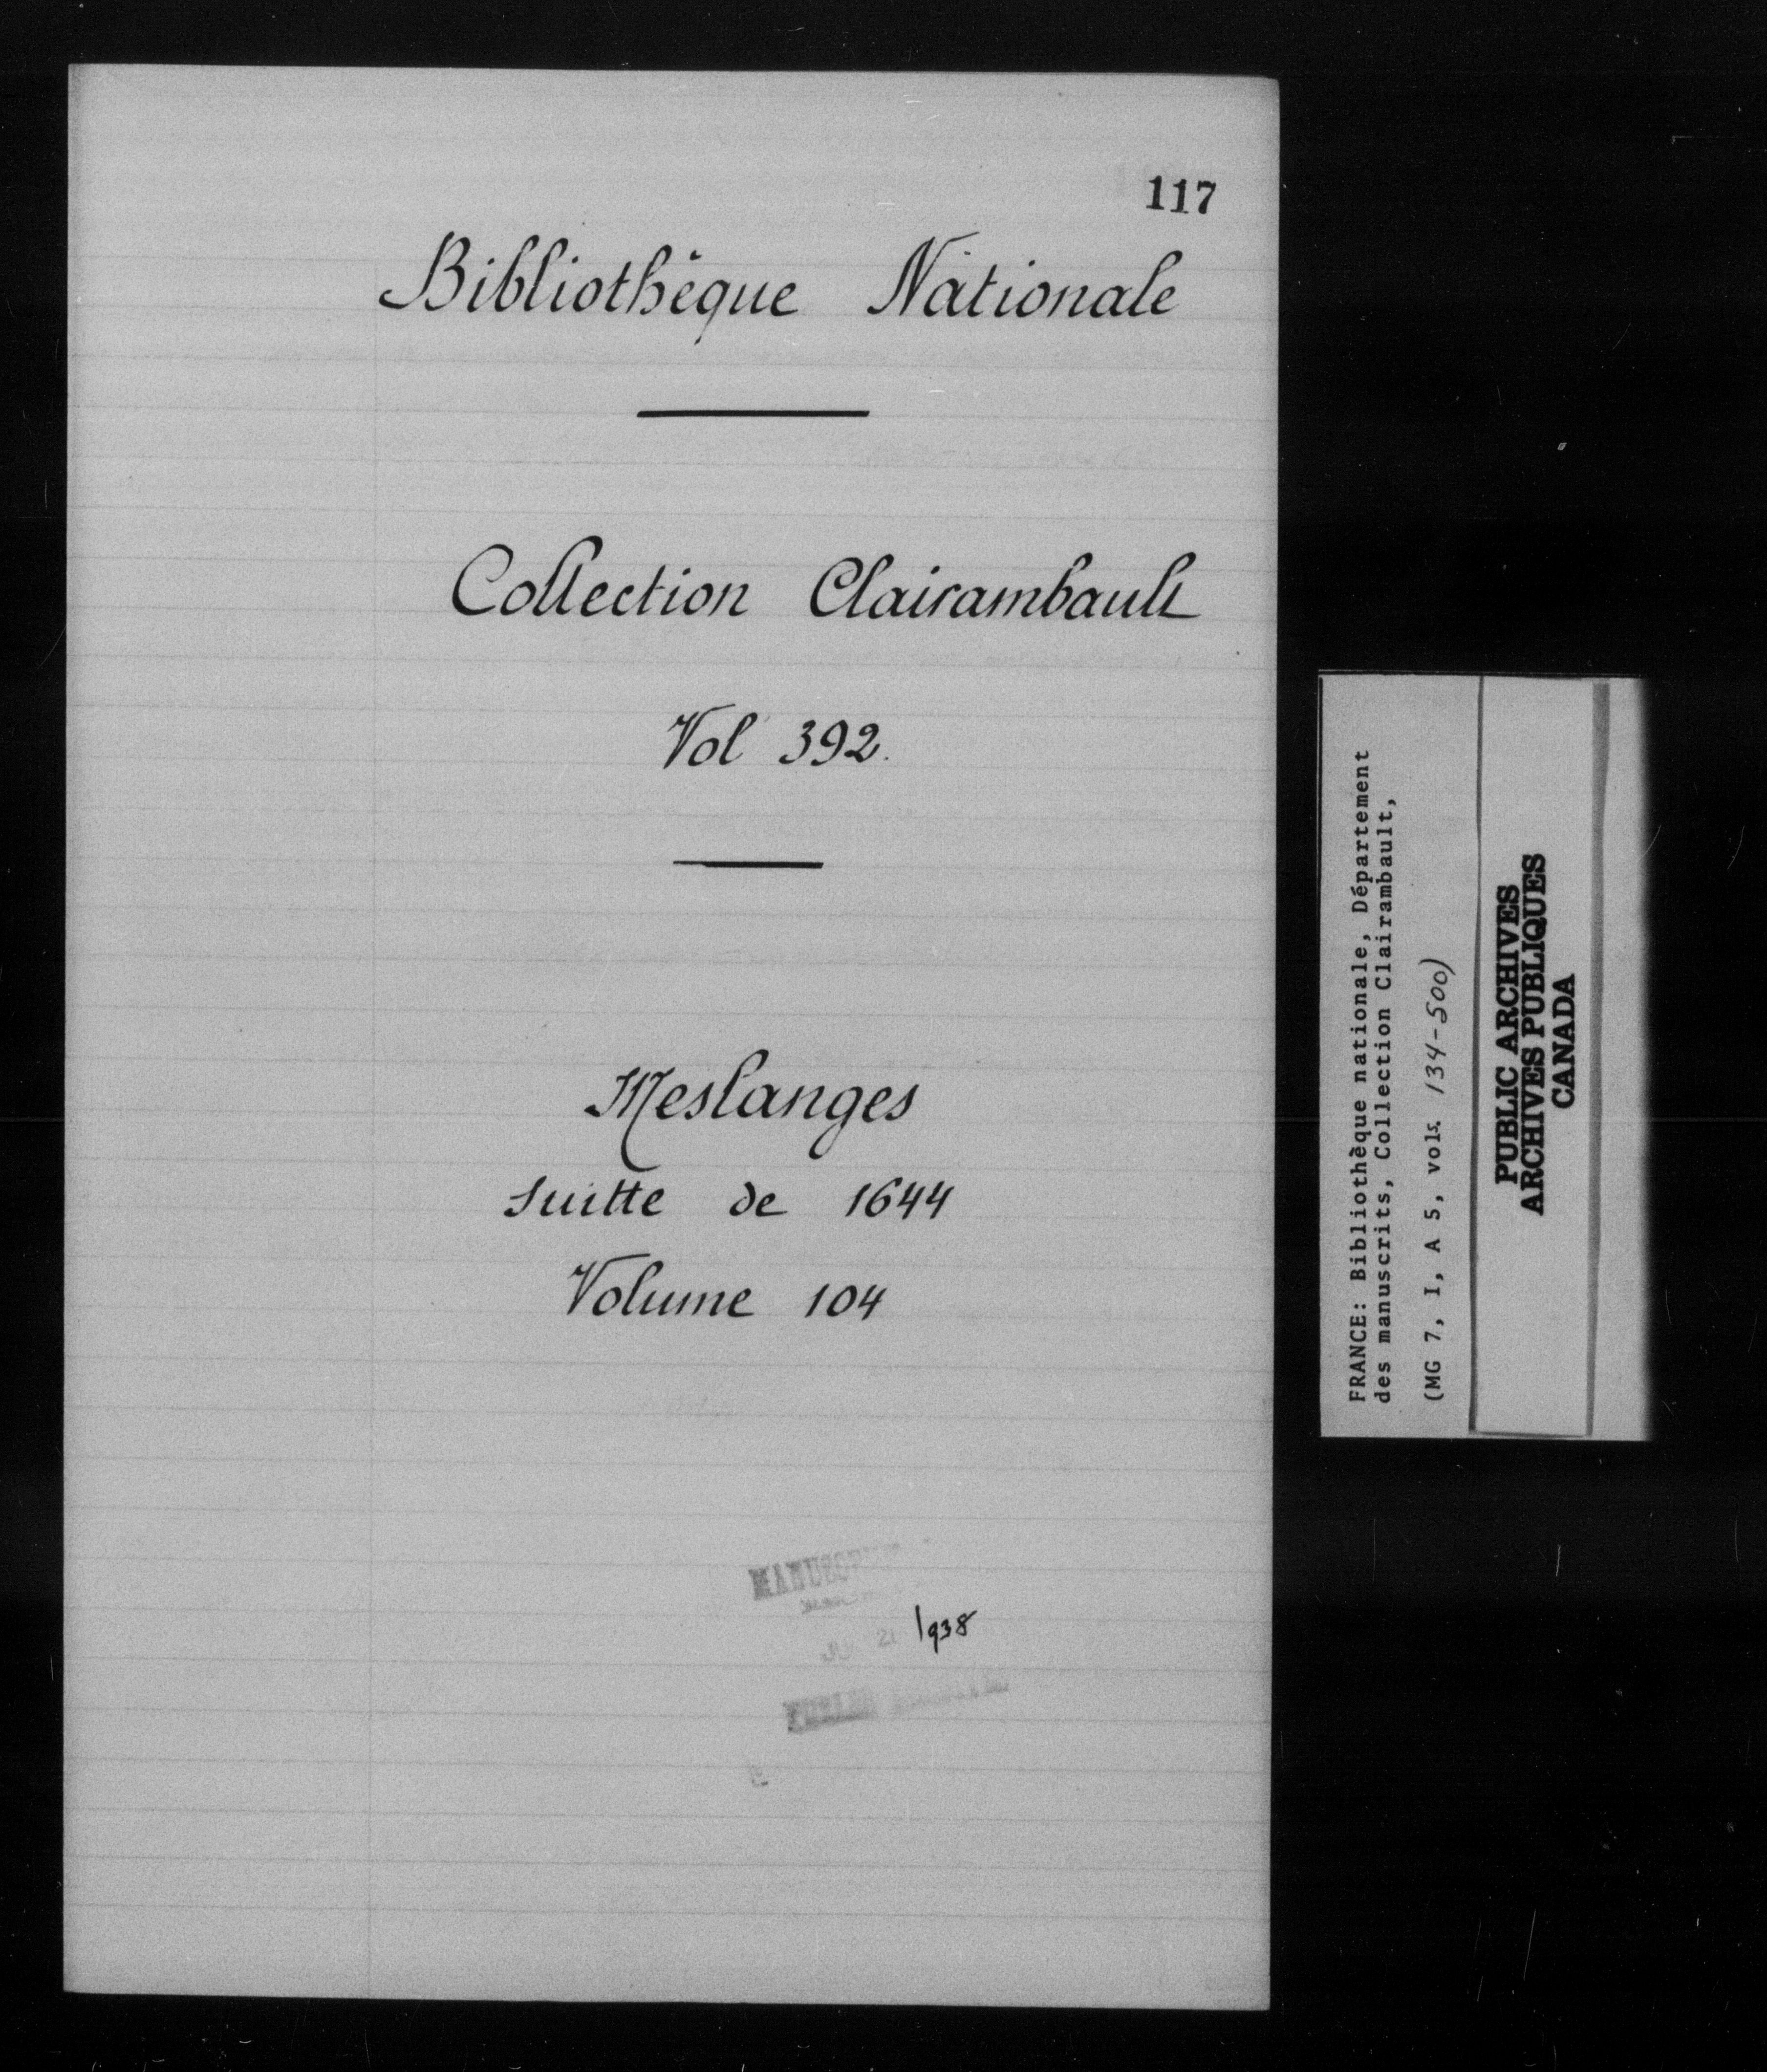 117
Bibliothèque Nationale
Collection Clairambault
Vol 392.
Meslanges
suitte de 1644
Volume 104
21 1938
FRANCE: Bibliothèque nationale, Département
des manuscrits, Collection Clairambault,
(MG 7, I, A 5, vols. 134-500)
PUBLIC ARCHIVES
ARCHIVES PUBLIQUES
CANADA